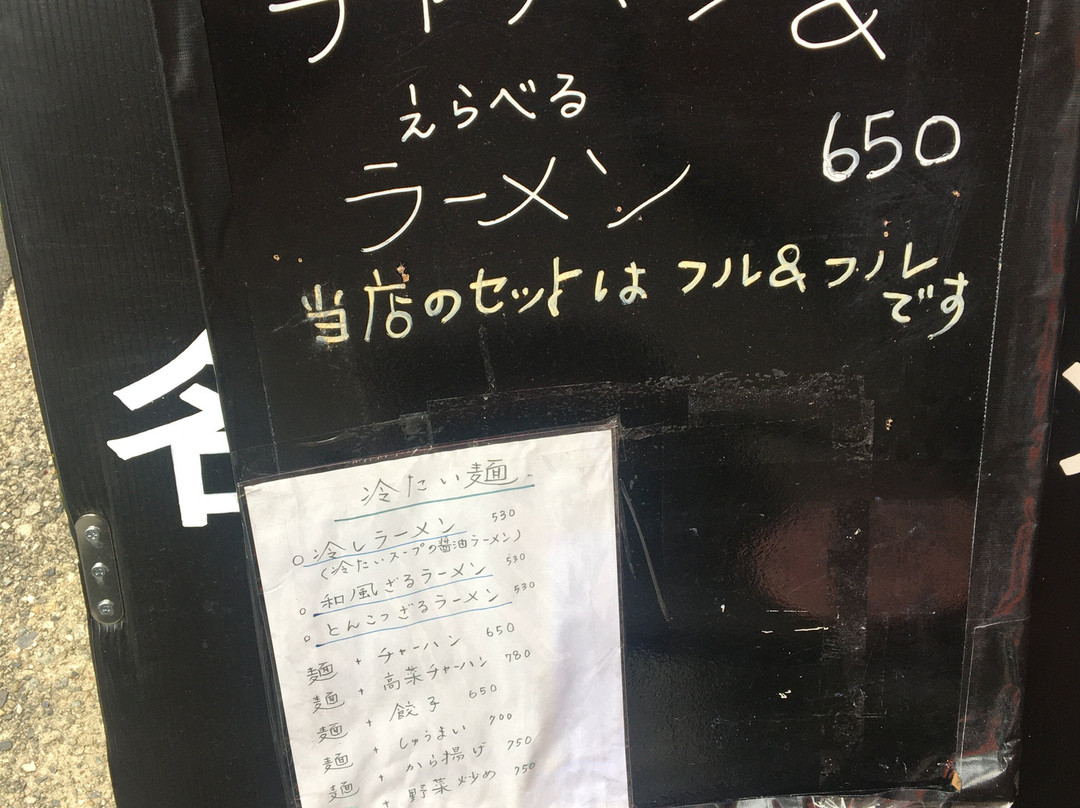 チャーハン&
えらべる
ラーメン 650
当店のセットは フル&フル
です
冷たい麺
○冷しラーメン 530
(冷たいスープの醤油ラーメン)
○和風ざるラーメン 530
○とんこつざるラーメン 530
麺 + チャーハン 650
麺 + 高菜チャーハン 780
麺 + 餃子 650
麺 + しゅうまい 700
麺 + から揚げ 750
+ 野菜炒め 750